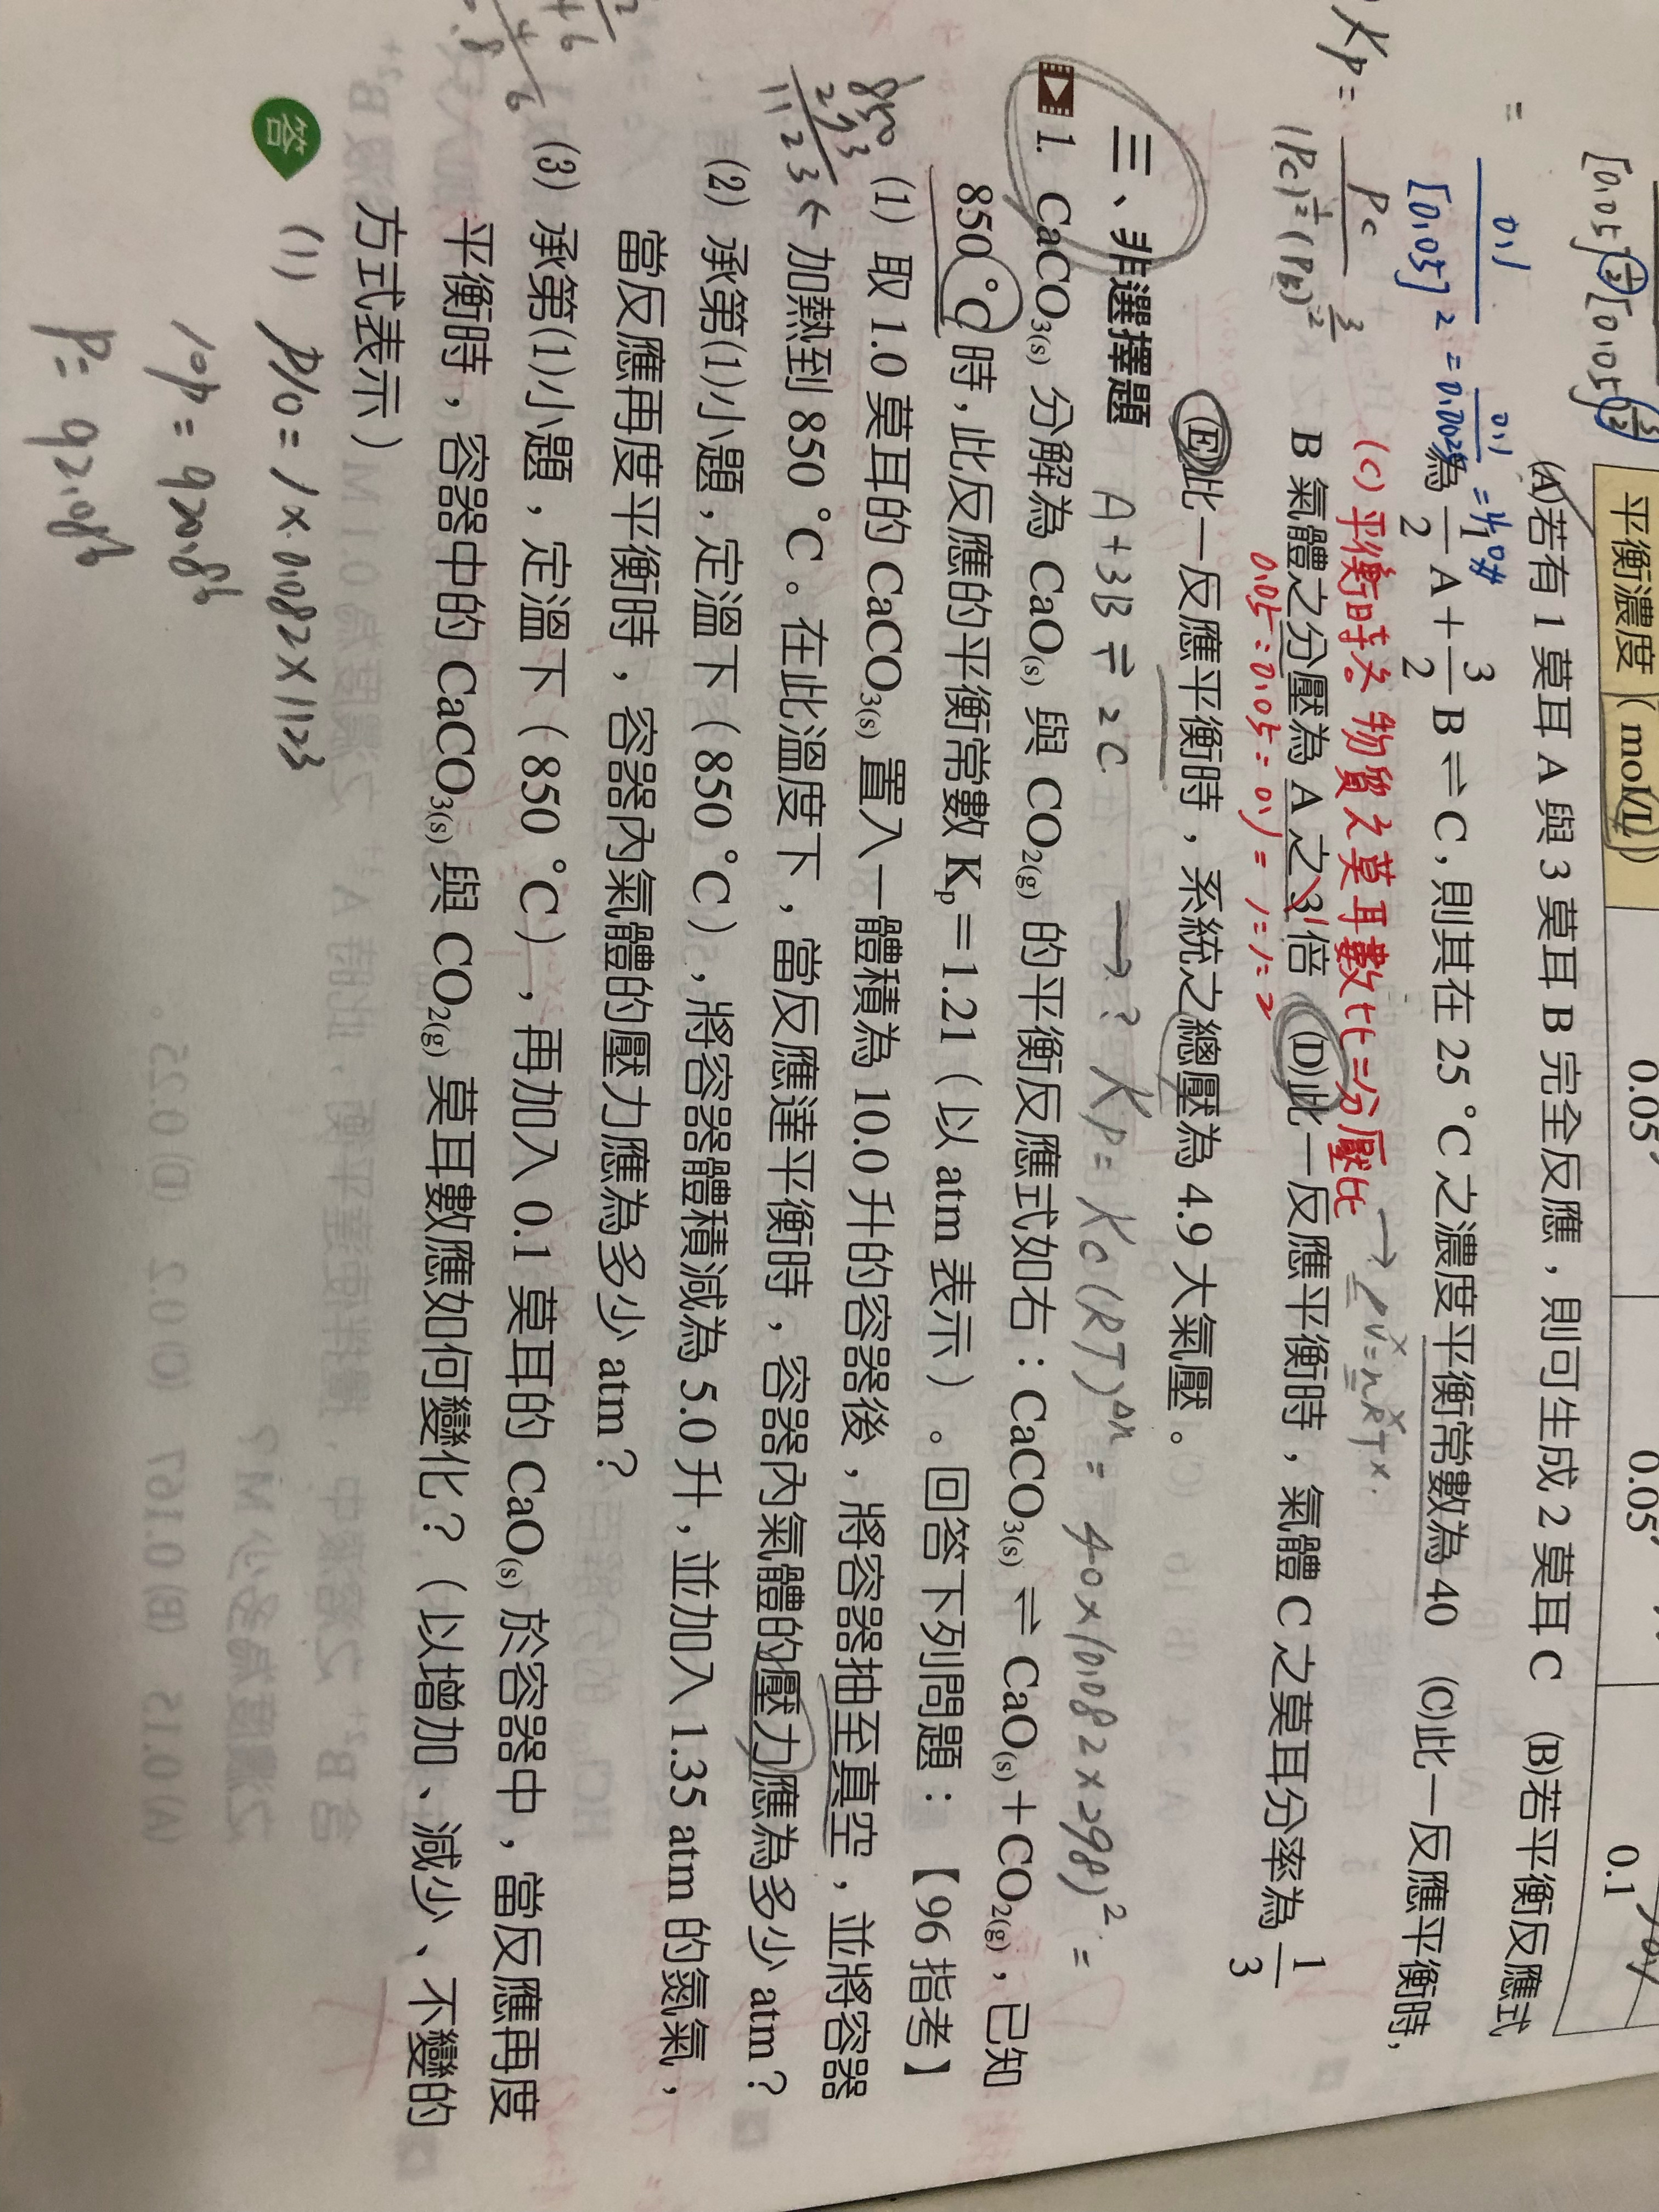 [0.05]^{1/2}[0.05]^{3/2}
平衡濃度(mol/L) 0.05 0.05 0.1
(A)若有 1 莫耳 A 與 3 莫耳 B 完全反應,則可生成 2 莫耳 C (B)若平衡反應式
= 0.1/[0.05]^2 = 0.1/0.0025 = 40
為 1/2 A + 3/2 B ⇌ C,則其在 25 °C 之濃度平衡常數為 40 (C)此一反應平衡時,
(C)平衡時各物質之莫耳數比=分壓比 → PV=nRT
Kp = Pc/(Pc)^{1/2}(PB)^{3/2}
B 氣體之分壓為 A 之 3 倍 (D)此一反應平衡時,氣體 C 之莫耳分率為 1/3
0.05:0.05=0.1=1:1:2
(E)此一反應平衡時,系統之總壓為 4.9 大氣壓。
A+3B ⇌ 2C → ? Kp = Kc(RT)^{Δn} = 40×(0.082×298)^2 =
三、非選擇題
1. CaCO3(s) 分解為 CaO(s) 與 CO2(g) 的平衡反應式如右:CaCO3(s) ⇌ CaO(s)+CO2(g),已知
850 °C 時,此反應的平衡常數 Kp=1.21(以 atm 表示)。回答下列問題: 【96 指考】
(1) 取 1.0 莫耳的 CaCO3(s) 置入一體積為 10.0 升的容器後,將容器抽至真空,並將容器
850
273
1123
加熱到 850 °C。在此溫度下,當反應達平衡時,容器內氣體的壓力應為多少 atm?
(2) 承第(1)小題,定溫下(850 °C),將容器體積減為 5.0 升,並加入 1.35 atm 的氮氣,
當反應再度平衡時,容器內氣體的壓力應為多少 atm?
(3) 承第(1)小題,定溫下(850 °C),再加入 0.1 莫耳的 CaO(s) 於容器中,當反應再度
平衡時,容器中的 CaCO3(s) 與 CO2(g) 莫耳數應如何變化?(以增加、減少、不變的
方式表示)
答 (1) P10 = 1×0.082×1123
10P = 920.8
P = 92.08